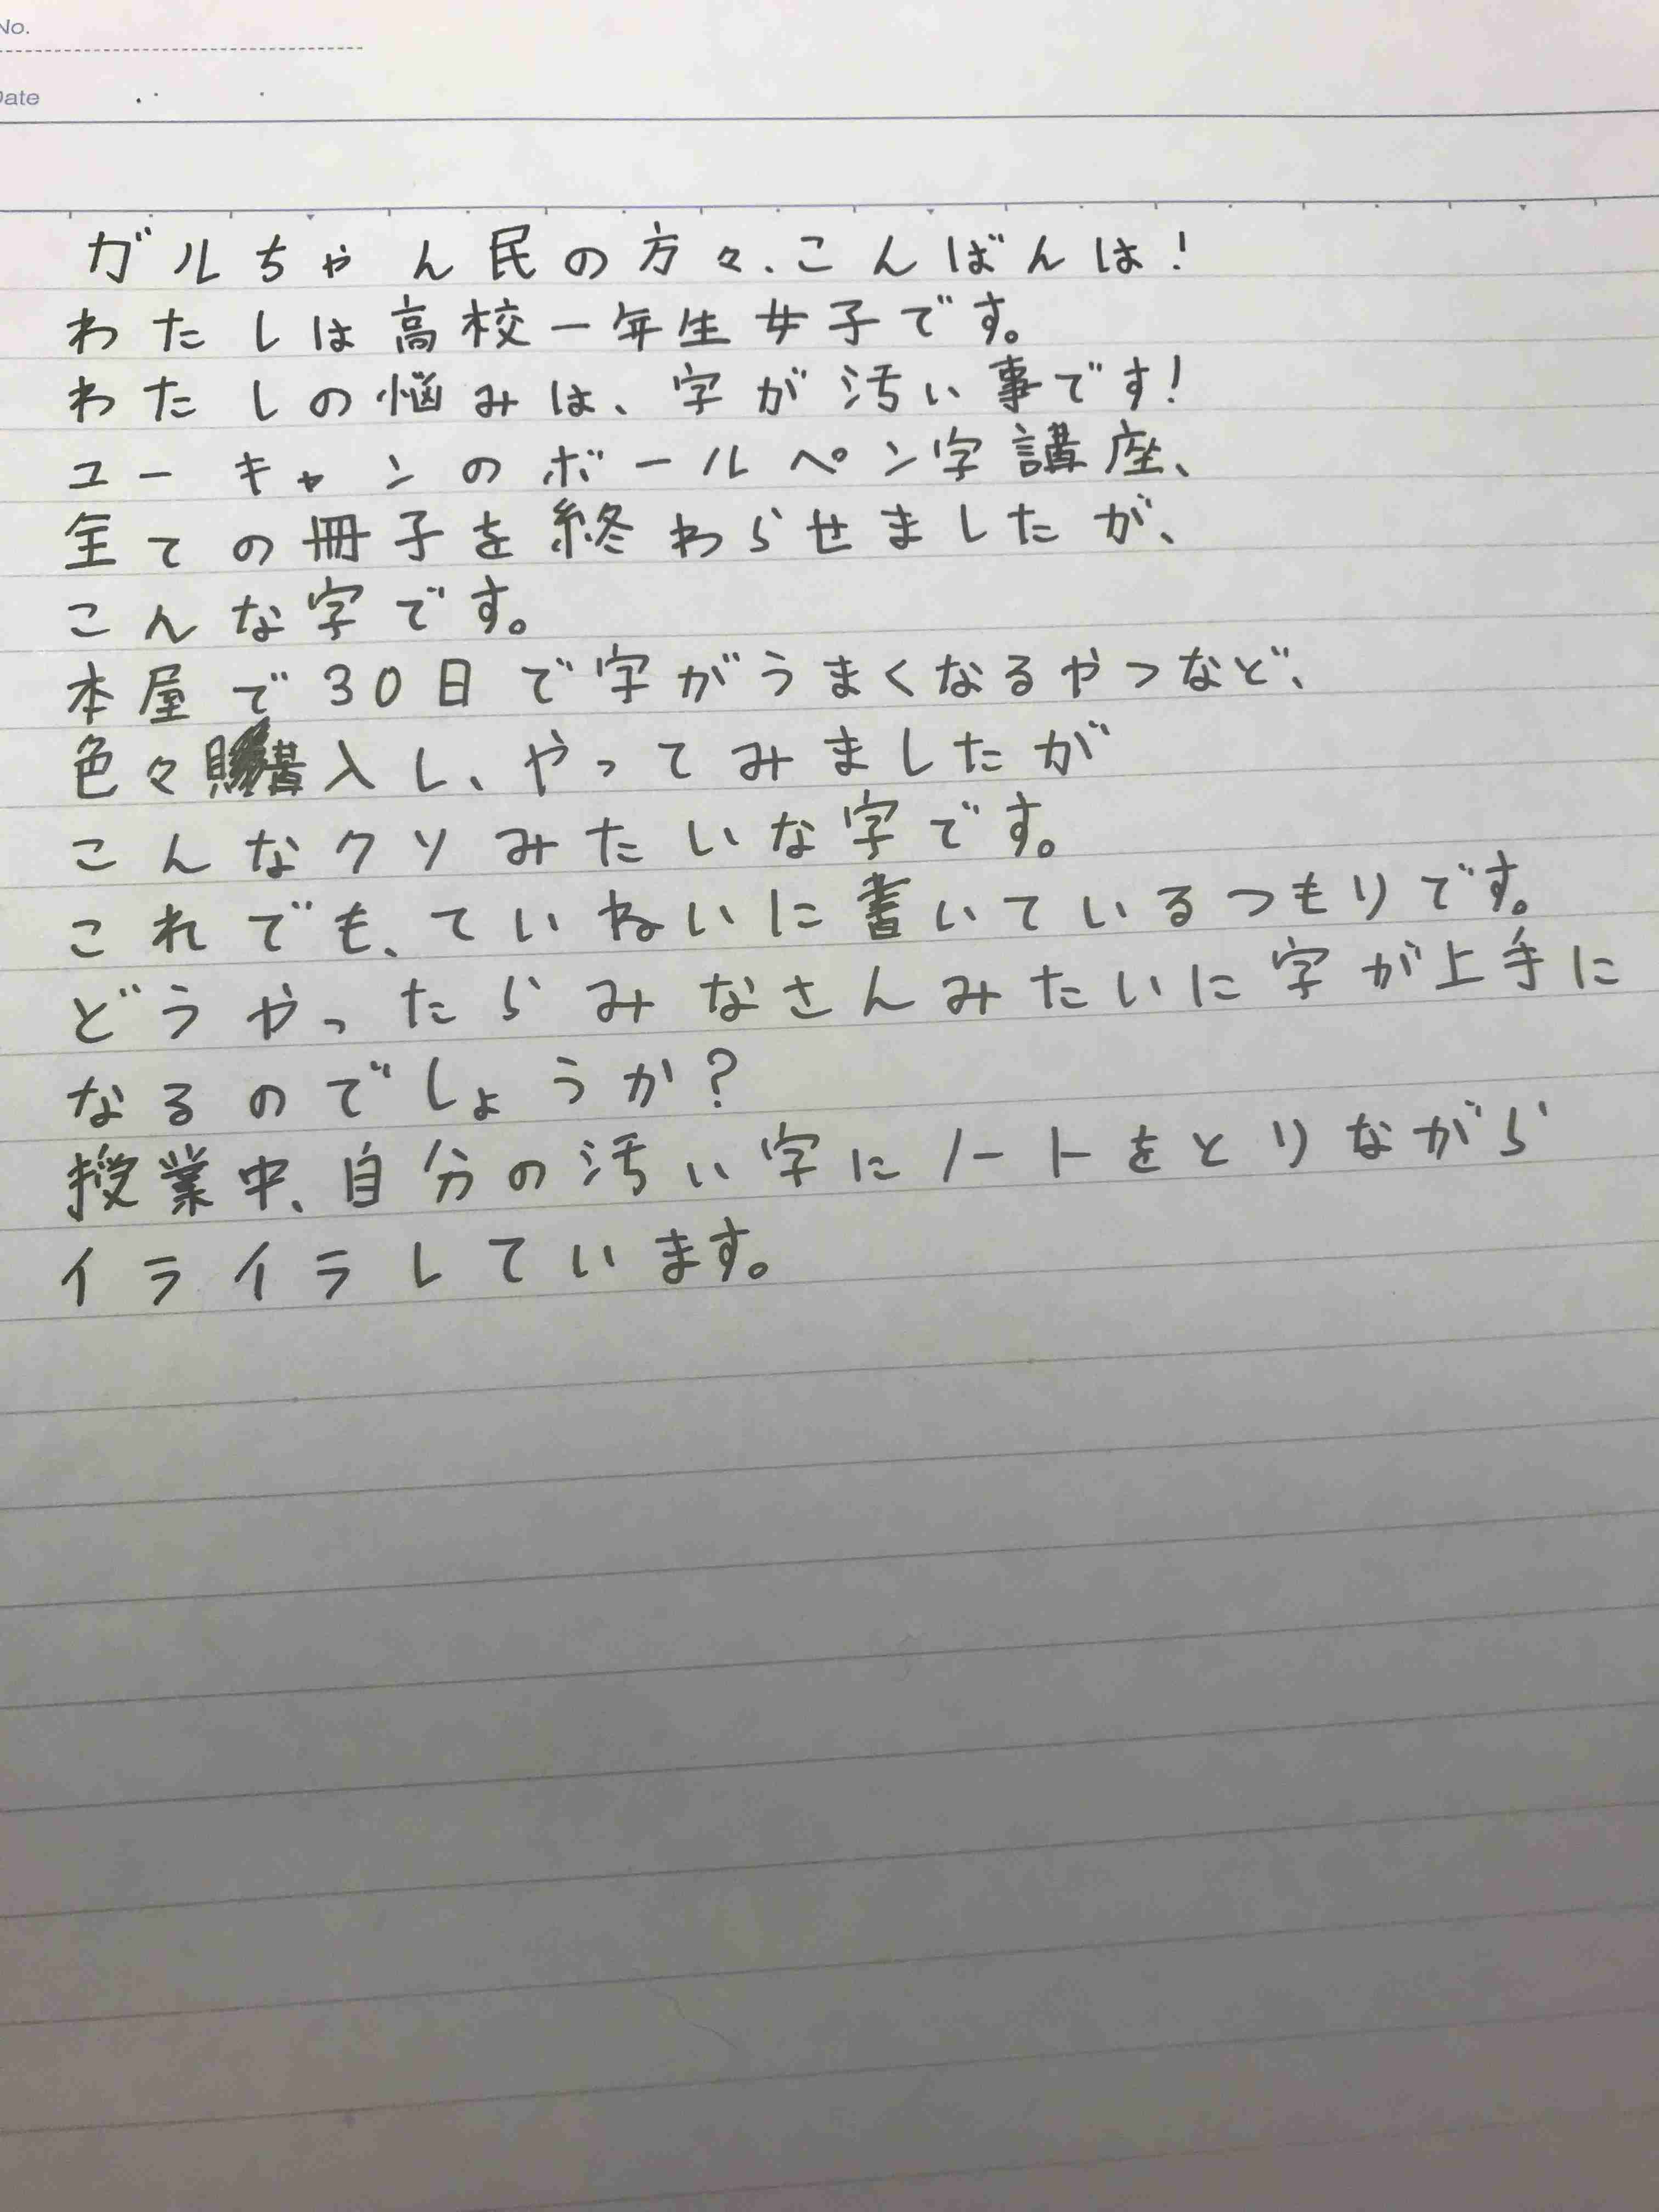 No.
Date
ガルちゃん民の方々、こんばんは!
わたしは高校一年生女子です。
わたしの悩みは、字が汚い事です!
ユーキャンのボールペン字講座、
全ての冊子を終わらせましたが、
こんな字です。
本屋で30日で字がうまくなるやつなど、
色々購入し、やってみましたが
こんなクソみたいな字です。
これでも、ていねいに書いているつもりです。
どうやったらみなさんみたいに字が上手に
なるのでしょうか?
授業中、自分の汚い字にノートをとりながら
イライラしています。